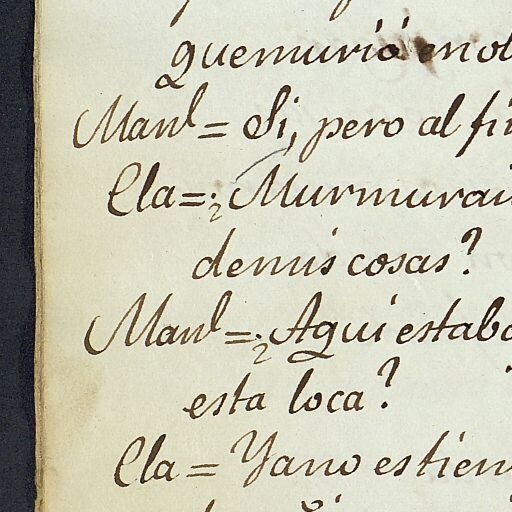 que murió en
Manl = Si, pero al
Cla = ¿Murmurai
de mis cosas?
Manl = ¿Aqui estab
esta loca?
Cla = Ya no es tiem